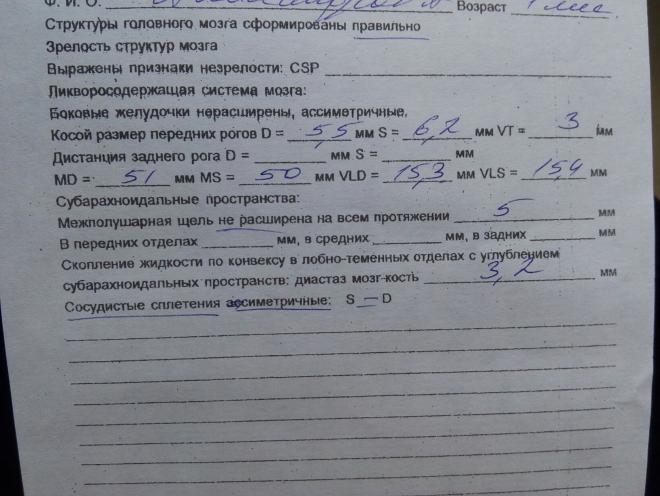 Ф. И. О. Возраст 1 мес.
Структуры головного мозга сформированы правильно
Зрелость структур мозга
Выражены признаки незрелости: CSP
Ликворосодержащая система мозга:
Боковые желудочки нерасширены, ассиметричные,
Косой размер передних рогов D = 5,5 мм S = 6,2 мм VT = 3 мм
Дистанция заднего рога D = мм S = мм
MD = 51 мм MS = 50 мм VLD = 15,3 мм VLS = 15,4 мм
Субарахноидальные пространства:
Межполушарная щель не расширена на всем протяжении 5 мм
В передних отделах мм, в средних мм, в задних мм
Скопление жидкости по конвексу в лобно-теменных отделах с углублением
субарахноидальных пространств: диастаз мозг-кость 3,2 мм
Сосудистые сплетения ассиметричные: S — D